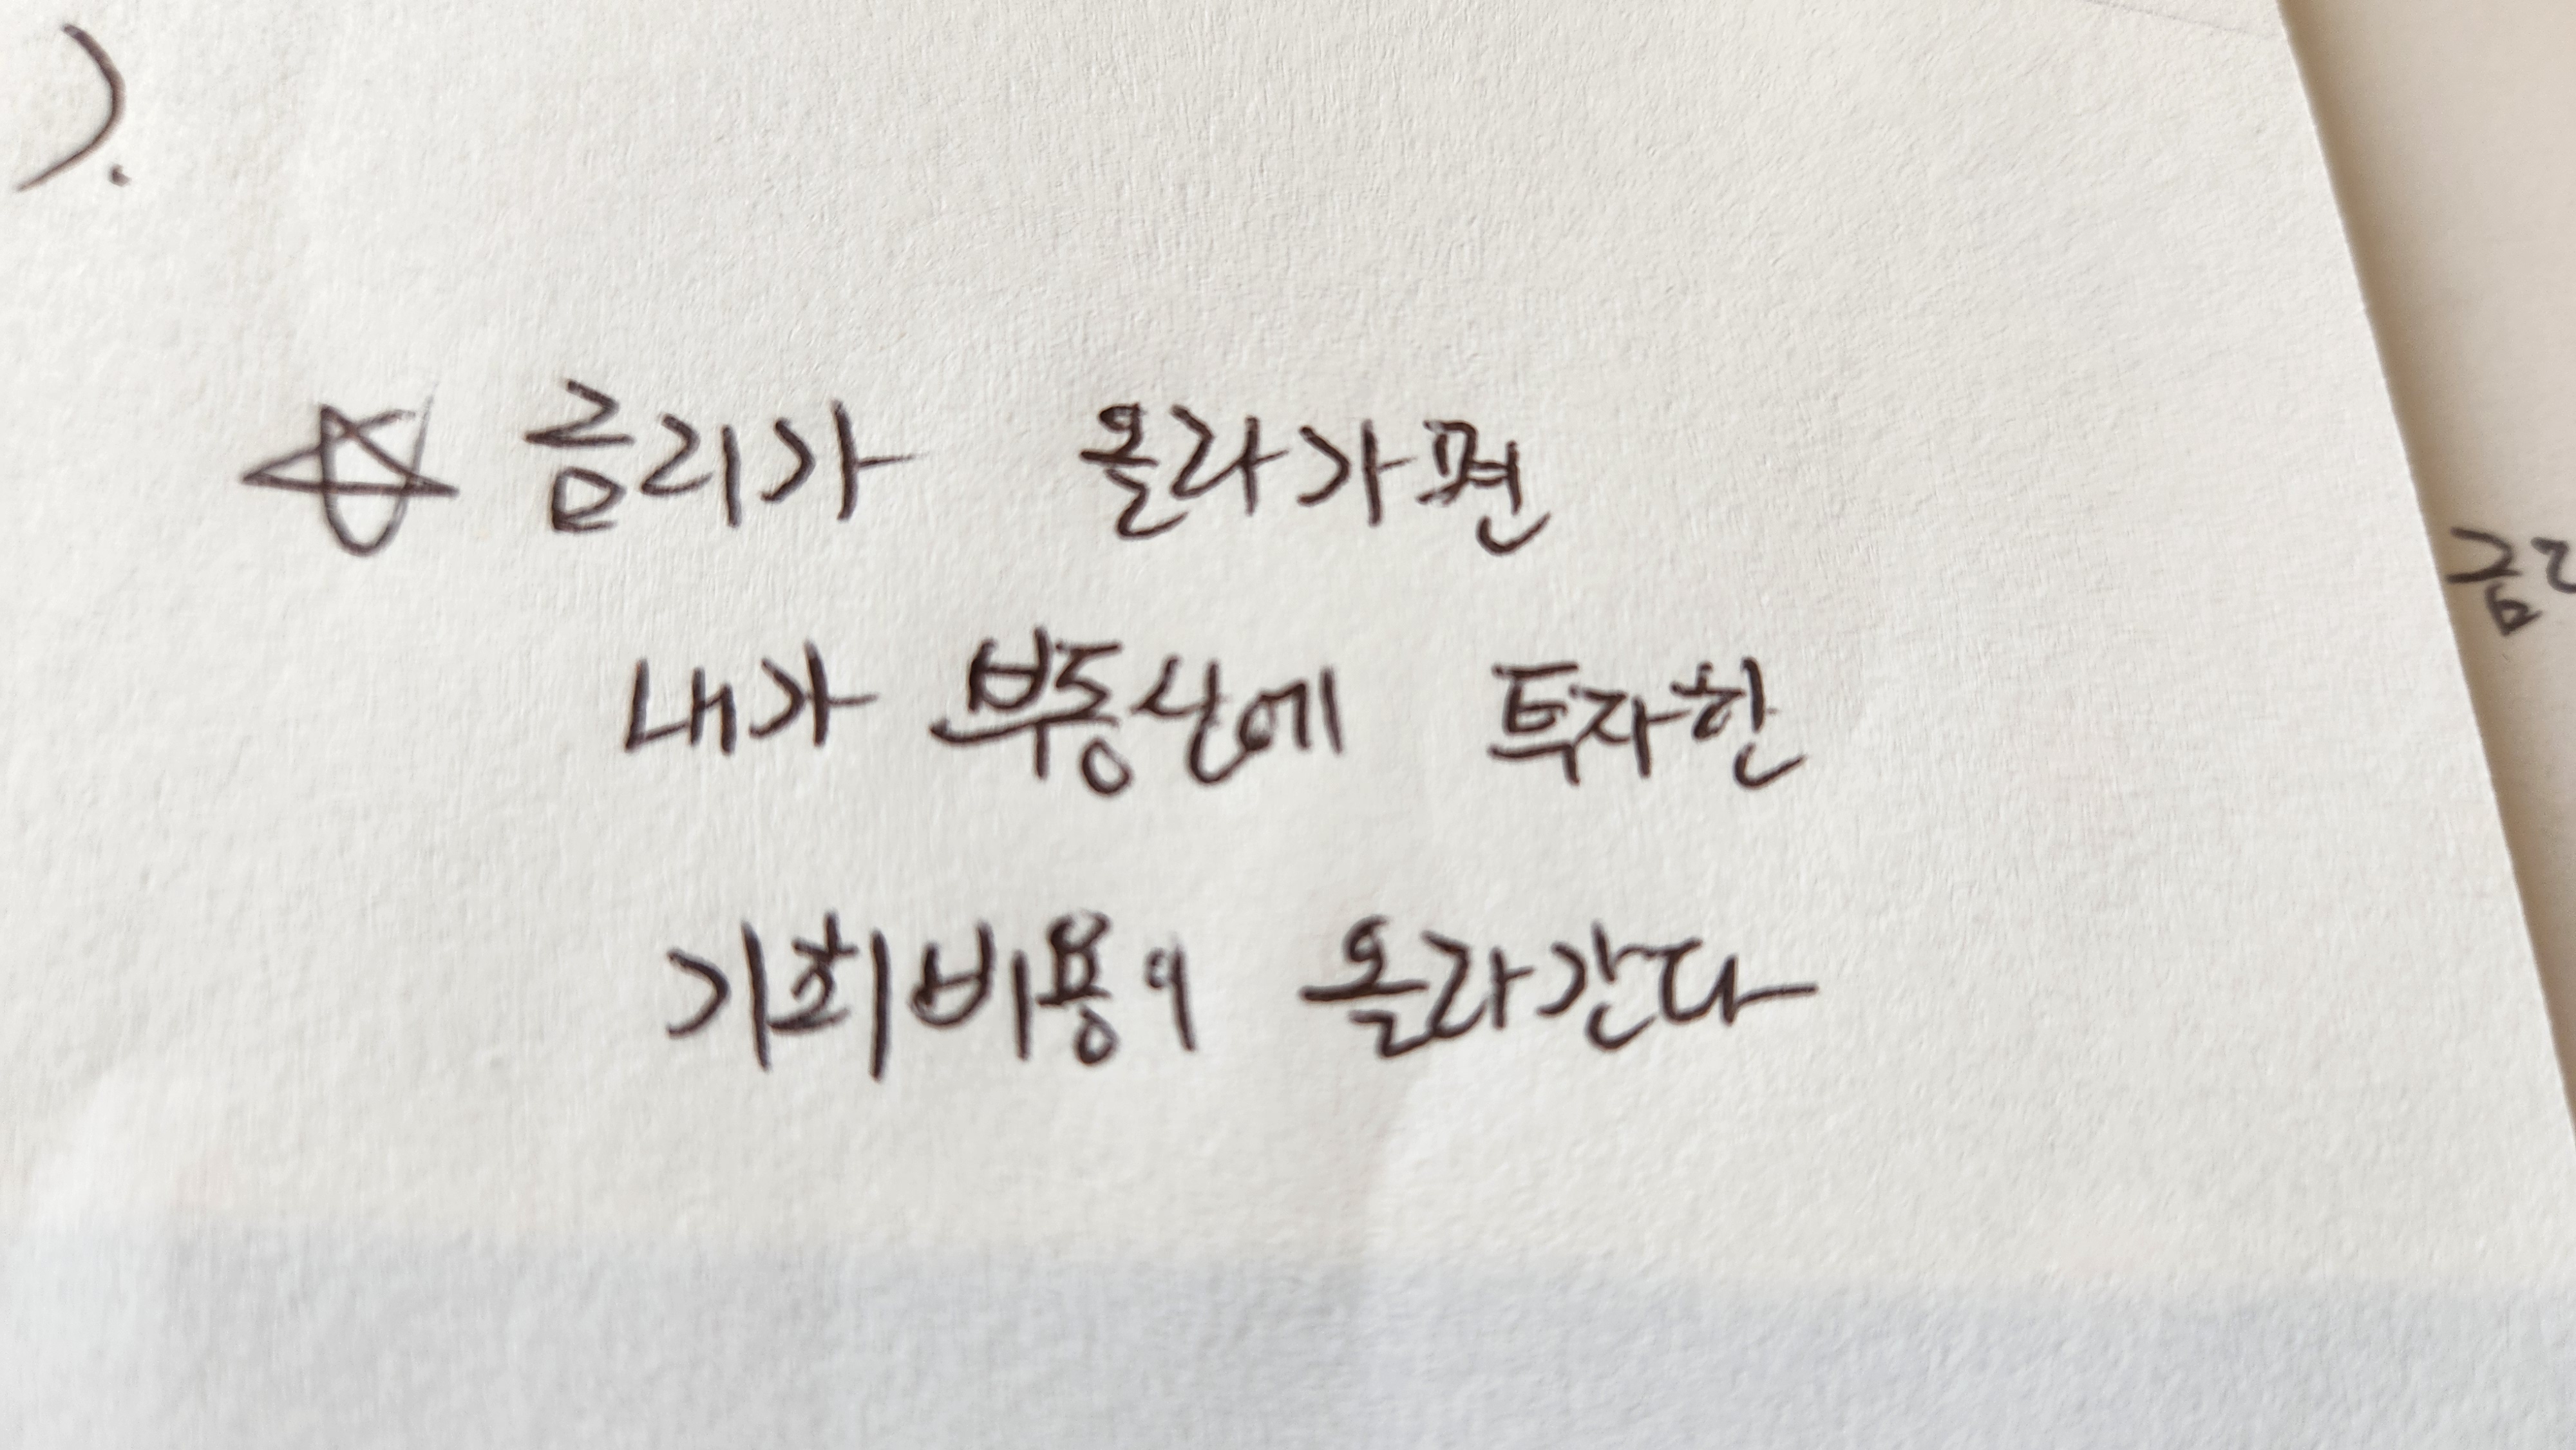 ).
☆ 금리가 올라가면
금리
내가 부동산에 투자한
기회비용이 올라간다